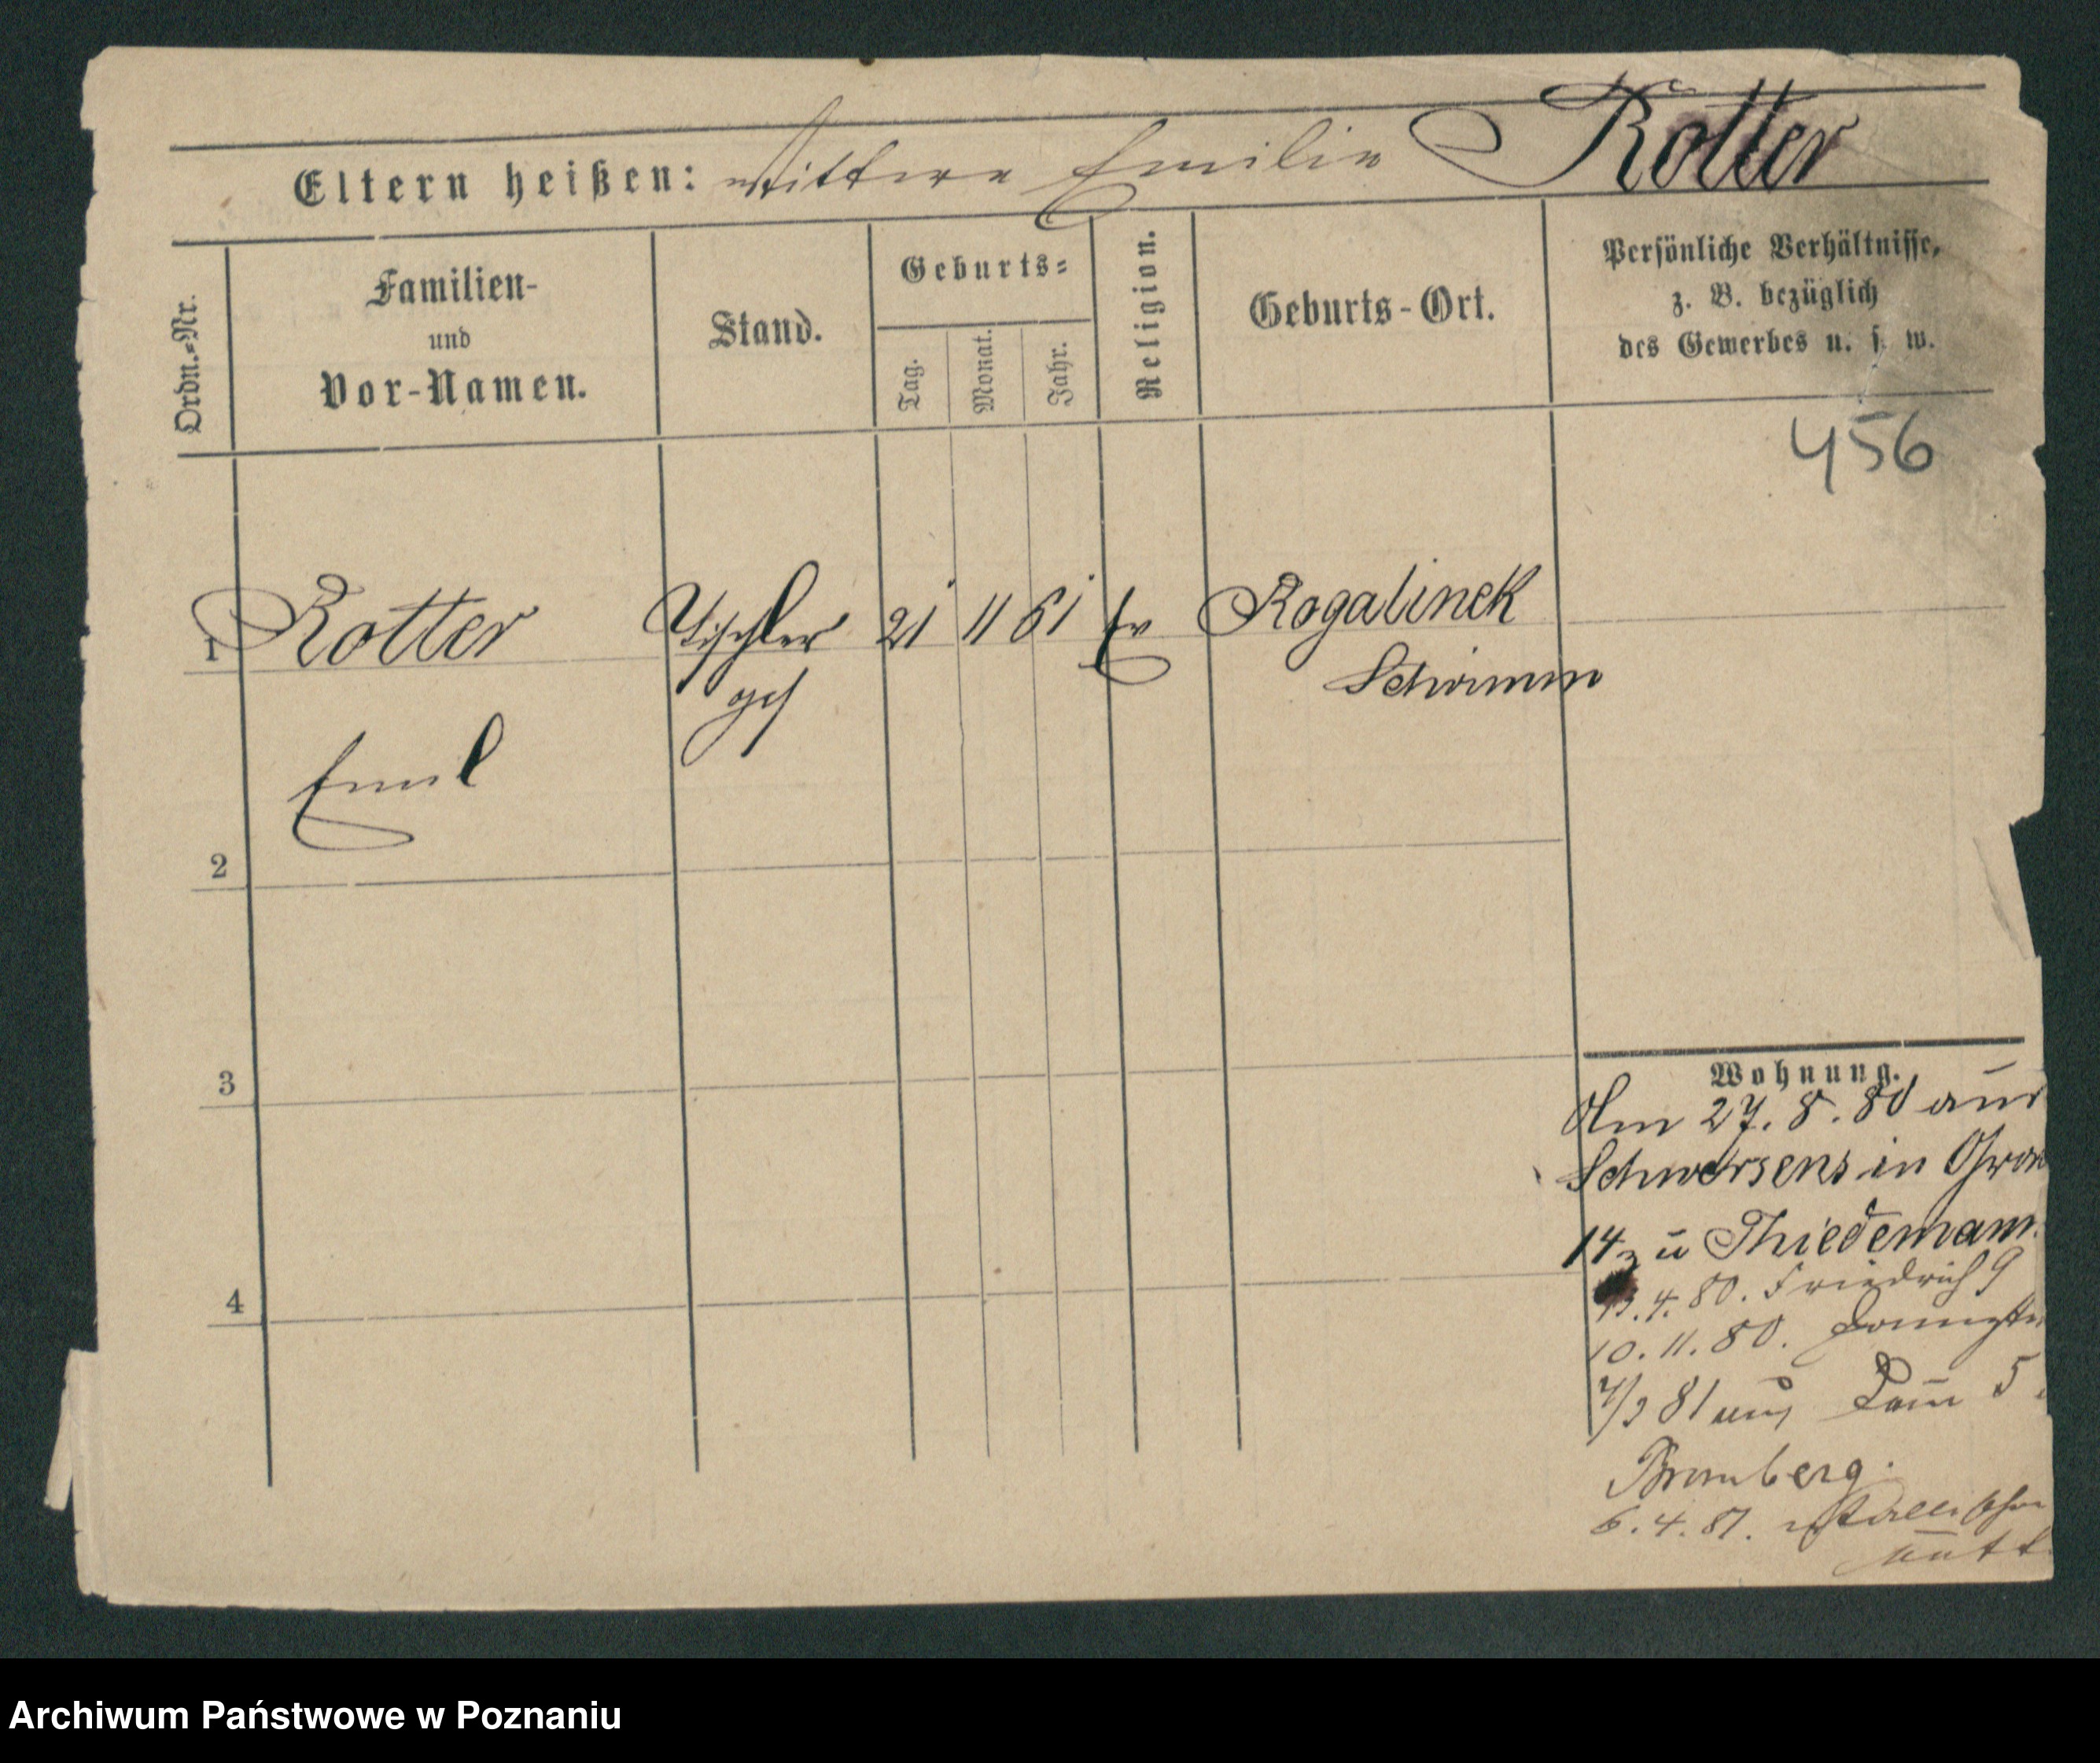 Rotter
Eltern heißen: Emilie
Ordn.=Nr.
Familien-
und
Vor-Namen.
Stand.
Geburts=
Tag.
Monat.
Jahr.
Religion.
Geburts-Ort.
Persönliche Verhältnisse,
z. B. bezüglich
des Gewerbes u. s. w.
456
1 Rotter Tischler 21 11 61 Ev Rogalinek
ges Schrimm
Emil
2
3
4
Wohnung.
Am 27. 8. 80 aus
Schwersens in
14 zu Thiedemann
.80. Friedrich 9
10. 11. 80.
81 aus 5
Bromberg.
6. 4. 81.
Archiwum Państwowe w Poznaniu